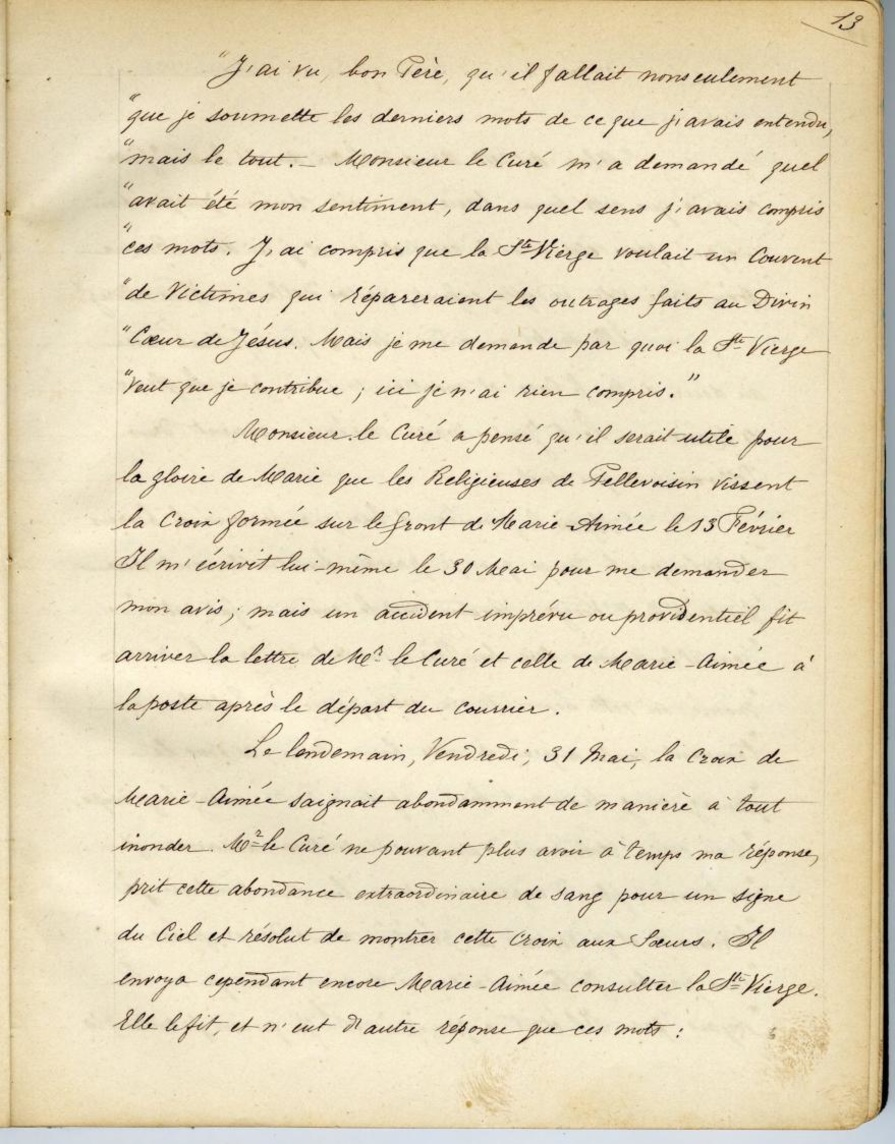 13
"J'ai vu, bon Père, qu'il fallait nonseulement
"que je soumette les derniers mots de ce que j'avais entendu,
"mais le tout. _ Monsieur le Curé m'a demandé quel
"avait été mon sentiment, dans quel sens j'avais compris
"ces mots. J'ai compris que la Ste Vierge voulait un Couvent
"de Victimes qui répareraient les outrages faits au Divin
"Cœur de Jésus. Mais je me demande par quoi la Ste Vierge
"veut que je contribue ; ici je n'ai rien compris."
Monsieur le Curé a pensé qu'il serait utile pour
la gloire de Marie que les Religieuses de Pellevoisin vissent
la Croix formée sur le front de Marie-Aimée le 13 Février
Il m'écrivit lui-même le 30 Mai pour me demander
mon avis ; mais un accident imprévu ou providentiel fit
arriver la lettre de Mr le Curé et celle de Marie-Aimée à
la poste après le départ du courrier.
Le lendemain, Vendredi, 31 Mai, la Croix de
Marie-Aimée saignait abondamment de manière à tout
inonder. Mr le Curé ne pouvant plus avoir à temps ma réponse,
prit cette abondance extraordinaire de sang pour un signe
du Ciel et résolut de montrer cette Croix aux Sœurs. Il
envoya cependant encore Marie-Aimée consulter la Ste Vierge.
Elle le fit, et n'eut d'autre réponse que ces mots :